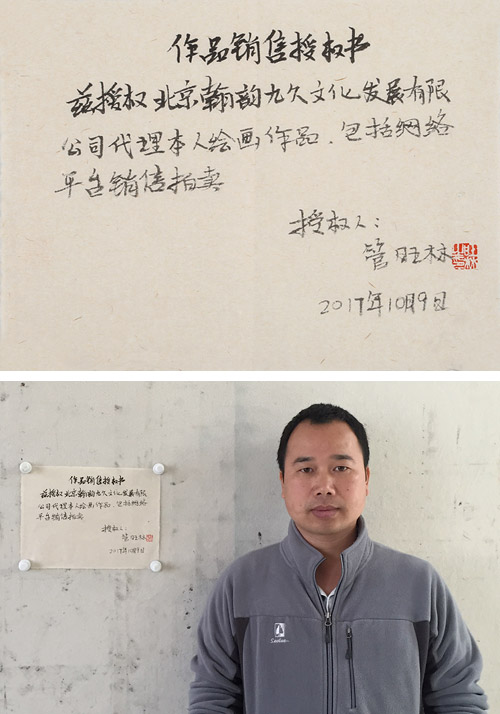 作品销售授权书
兹授权北京翰韵九久文化发展有限
公司代理本人绘画作品,包括网络
平台销售拍卖
授权人:
管旺林
2017年10月9日
作品销售授权书
兹授权北京翰韵九久文化发展有限
公司代理本人绘画作品,包括网络
平台销售拍卖
授权人:
管旺林
2017年10月9日